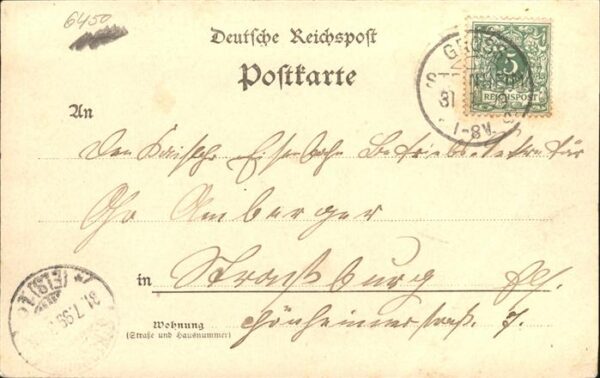 6450
Deutsche Reichspost
Postkarte
An
den Kaiserl. Eisenbahn Betriebssekretär
Amberger
in Straßburg Els.
Wohnung
(Straße und Hausnummer)
Schönheimerstraß. 7.
5
REICHSPOST
31
1-8V.
(ELS)
31.7.99